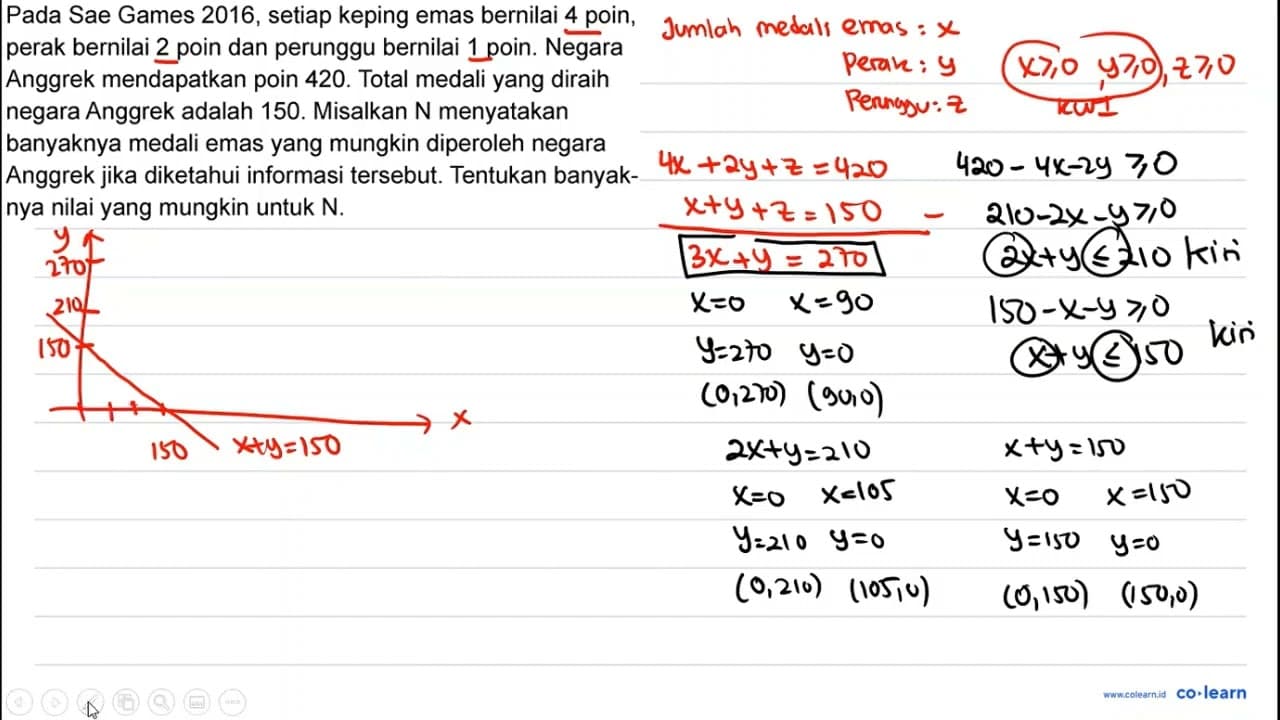 Pada Sae Games 2016, setiap keping emas bernilai 4 poin,
perak bernilai 2 poin dan perunggu bernilai 1 poin. Negara
Anggrek mendapatkan poin 420. Total medali yang diraih
negara Anggrek adalah 150. Misalkan N menyatakan
banyaknya medali emas yang mungkin diperoleh negara
Anggrek jika diketahui informasi tersebut. Tentukan banyak-
nya nilai yang mungkin untuk N.
Jumlah medali emas : x
Perak : y
Perunggu : z
x≥0, y≥0, z≥0
KW I
4x+2y+z=420
x+y+z=150 −
3x+y=270
x=0 x=90
y=270 y=0
(0,270) (90,0)
420-4x-2y≥0
210-2x-y≥0
2x+y≤210 kiri
150-x-y≥0
x+y≤150 kiri
2x+y=210
x=0 x=105
y=210 y=0
(0,210) (105,0)
x+y=150
x=0 x=150
y=150 y=0
(0,150) (150,0)
y
270
210
150
x
150 x+y=150
www.colearn.id co·learn